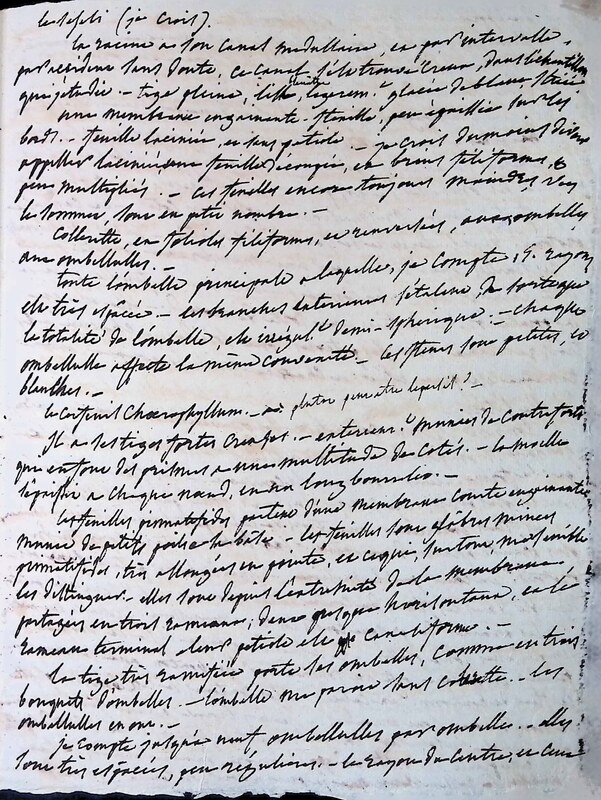 le seseli (je crois).
la racine a son canal medullaire, et par intervalle,
par accident sans doute, ce canal s'est trouvé creux, dans l'échantillon
que j'étudie. — tige pleine, lisse, legerem.t glacée de blanc, striée
une membrane engainante. feuille, peu épaissie sur les
bords. — feuille laciniée, et sans petiole. — je crois du moins devoir
appeller laciniée une feuille découpée, en brins filiformes, &
peu multipliés. — ces feuilles encore toujours moindres, vers
le sommet, sont en petit nombre. —
Collerette, en folioles filiformes, et renversées, aux ombelles,
aux ombellules. —
toute l'ombelle principale a laquelle, je compte, 15. rayons
est très espacée. — les branches exterieures s'étalent, de sorte que
la totalité de l'ombelle, est irrégul.t demi-spherique. — chaque
ombellule affecte la même convexité. — les fleurs sont petites, et
blanches. —
le cerfeuil Chaerophyllum. — plutot peut etre le persil? —
Il a ses tiges fortes creuses. — exterieur.t munies de contreforts
qui en font des prismes a une multitude de cotés. — la moelle
s'épaissit a chaque noeud, en un long bourrelet. —
les feuilles, primatifides partent d'une membrane courte engainante,
munie de petits poils a la base. — les feuilles sont glabres minces
primatifides, très allongées en pointe, et ce qui, surtout me semble
les distinguer. — elles sont depuis l'extremité de la membrane,
partagées en trois rameaux; deux presque horisontaux, et le
rameau terminal a leur petiole est canaliforme. —
la tige très ramifiée porte ses ombelles, comme en trois
bouquets d'ombelles. — l'ombelle me parait sans collerette. — les
ombellules en ont. —
je compte jusqu'à neuf ombellules par ombelle. — elles
sont très espacées, peu régulieres. — le rayon du centre, et ceux